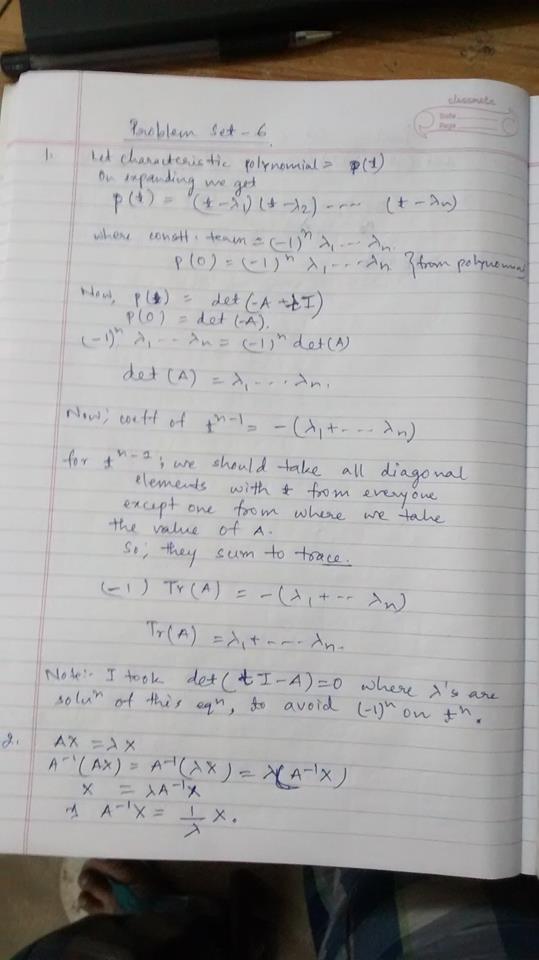 classmate
Date
Page
Problem Set - 6.
1. Let characteristic polynomial = p(t)
On expanding we get
p(t) = (t-λ₁)(t-λ₂) ---- (t-λn)
where constt. term = (-1)ⁿ λ₁ ---- λn.
p(0) = (-1)ⁿ λ₁ ---- λn } from polynomial
Now, p(t) = det(-A + tI)
p(0) = det(-A).
(-1)ⁿ λ₁ ---- λn = (-1)ⁿ det(A)
det(A) = λ₁ ---- λn.
Now; coeff of tⁿ⁻¹ = -(λ₁+---- λn)
for tⁿ⁻¹; we should take all diagonal
elements with t from everyone
except one from where we take
the value of A.
So; they sum to trace.
(-1) Tr(A) = -(λ₁+--- λn)
Tr(A) = λ₁+---- λn.
Note:- I took det(tI-A)=0 where λ's are
soluⁿ of this eqⁿ, to avoid (-1)ⁿ on tⁿ.
2. AX = λX
A⁻¹(AX) = A⁻¹(λX) = λ(A⁻¹X)
X = λA⁻¹X
⇒ A⁻¹X = 1/λ X.